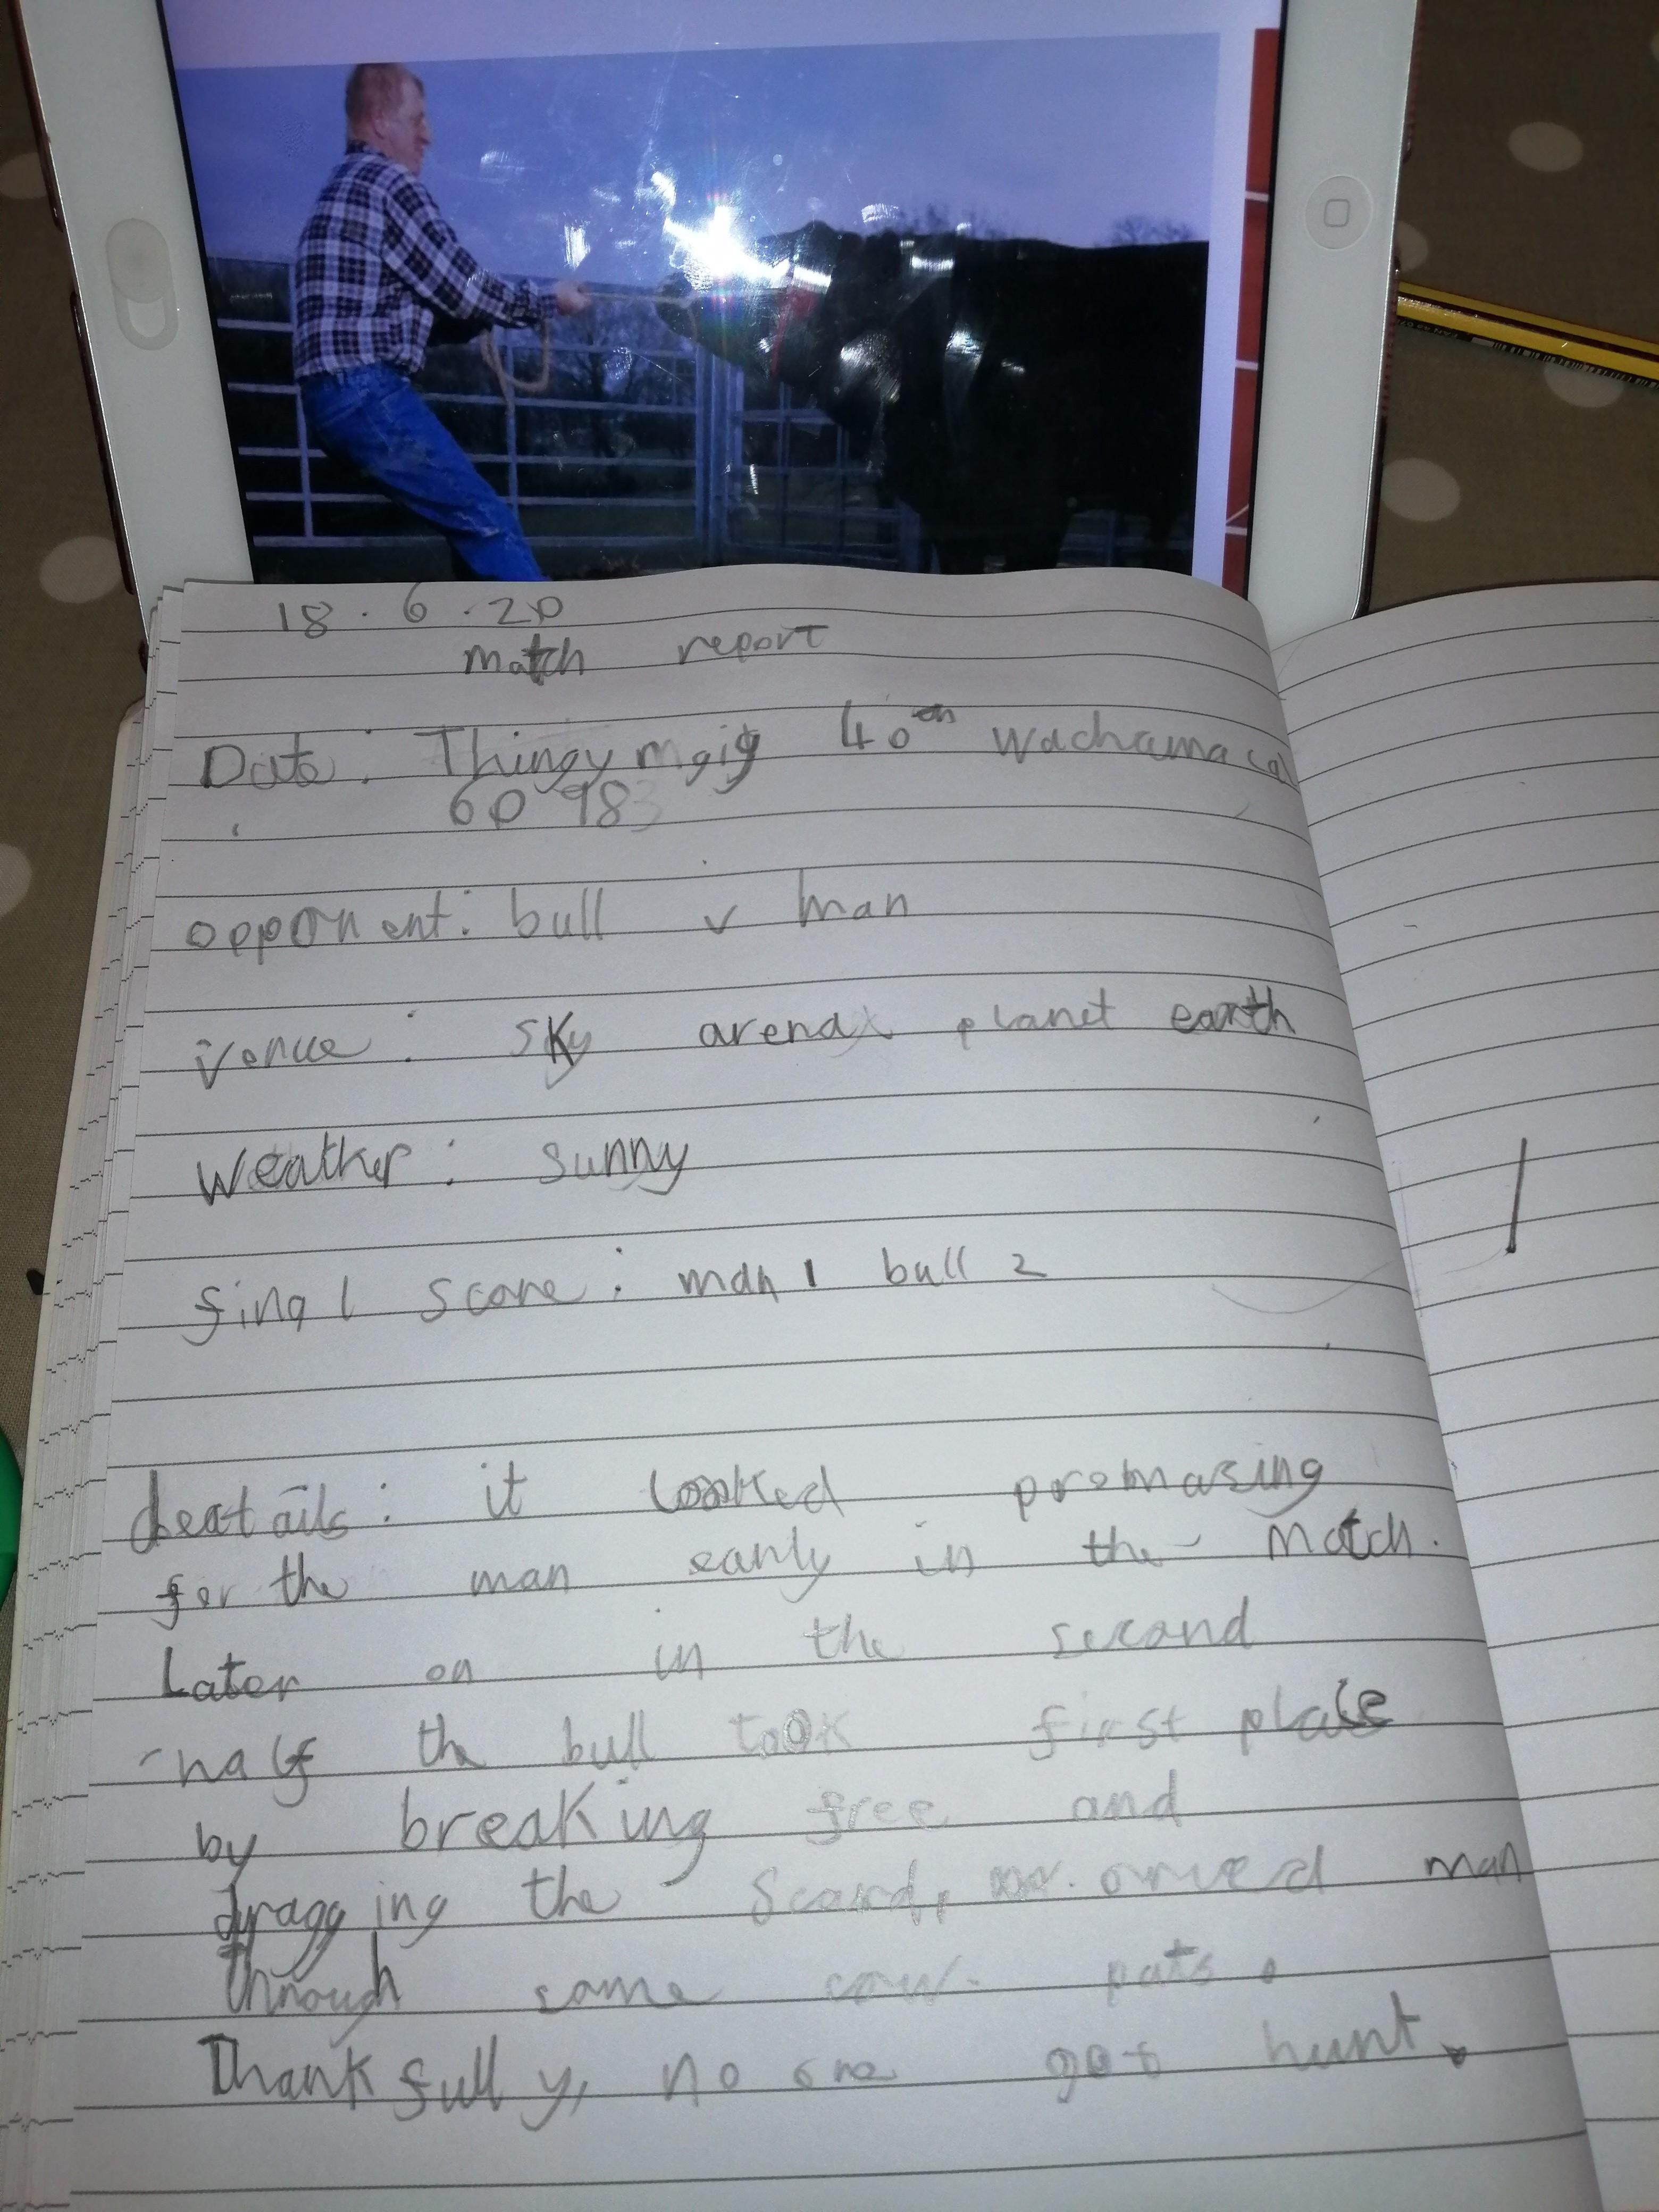 18.6.20
match report
Date: Thingymgig 40th wachamacal
60 983
opponent: bull v man
venue: sky arena planet earth
Weather: sunny
final score: man 1 bull 2
deatails: it looked promasing
for the man early in the match.
Later on in the second
half the bull took first place
by breaking free and
dragging the scard, man
through some cow-pats.
Thankfully, no one got hurt.